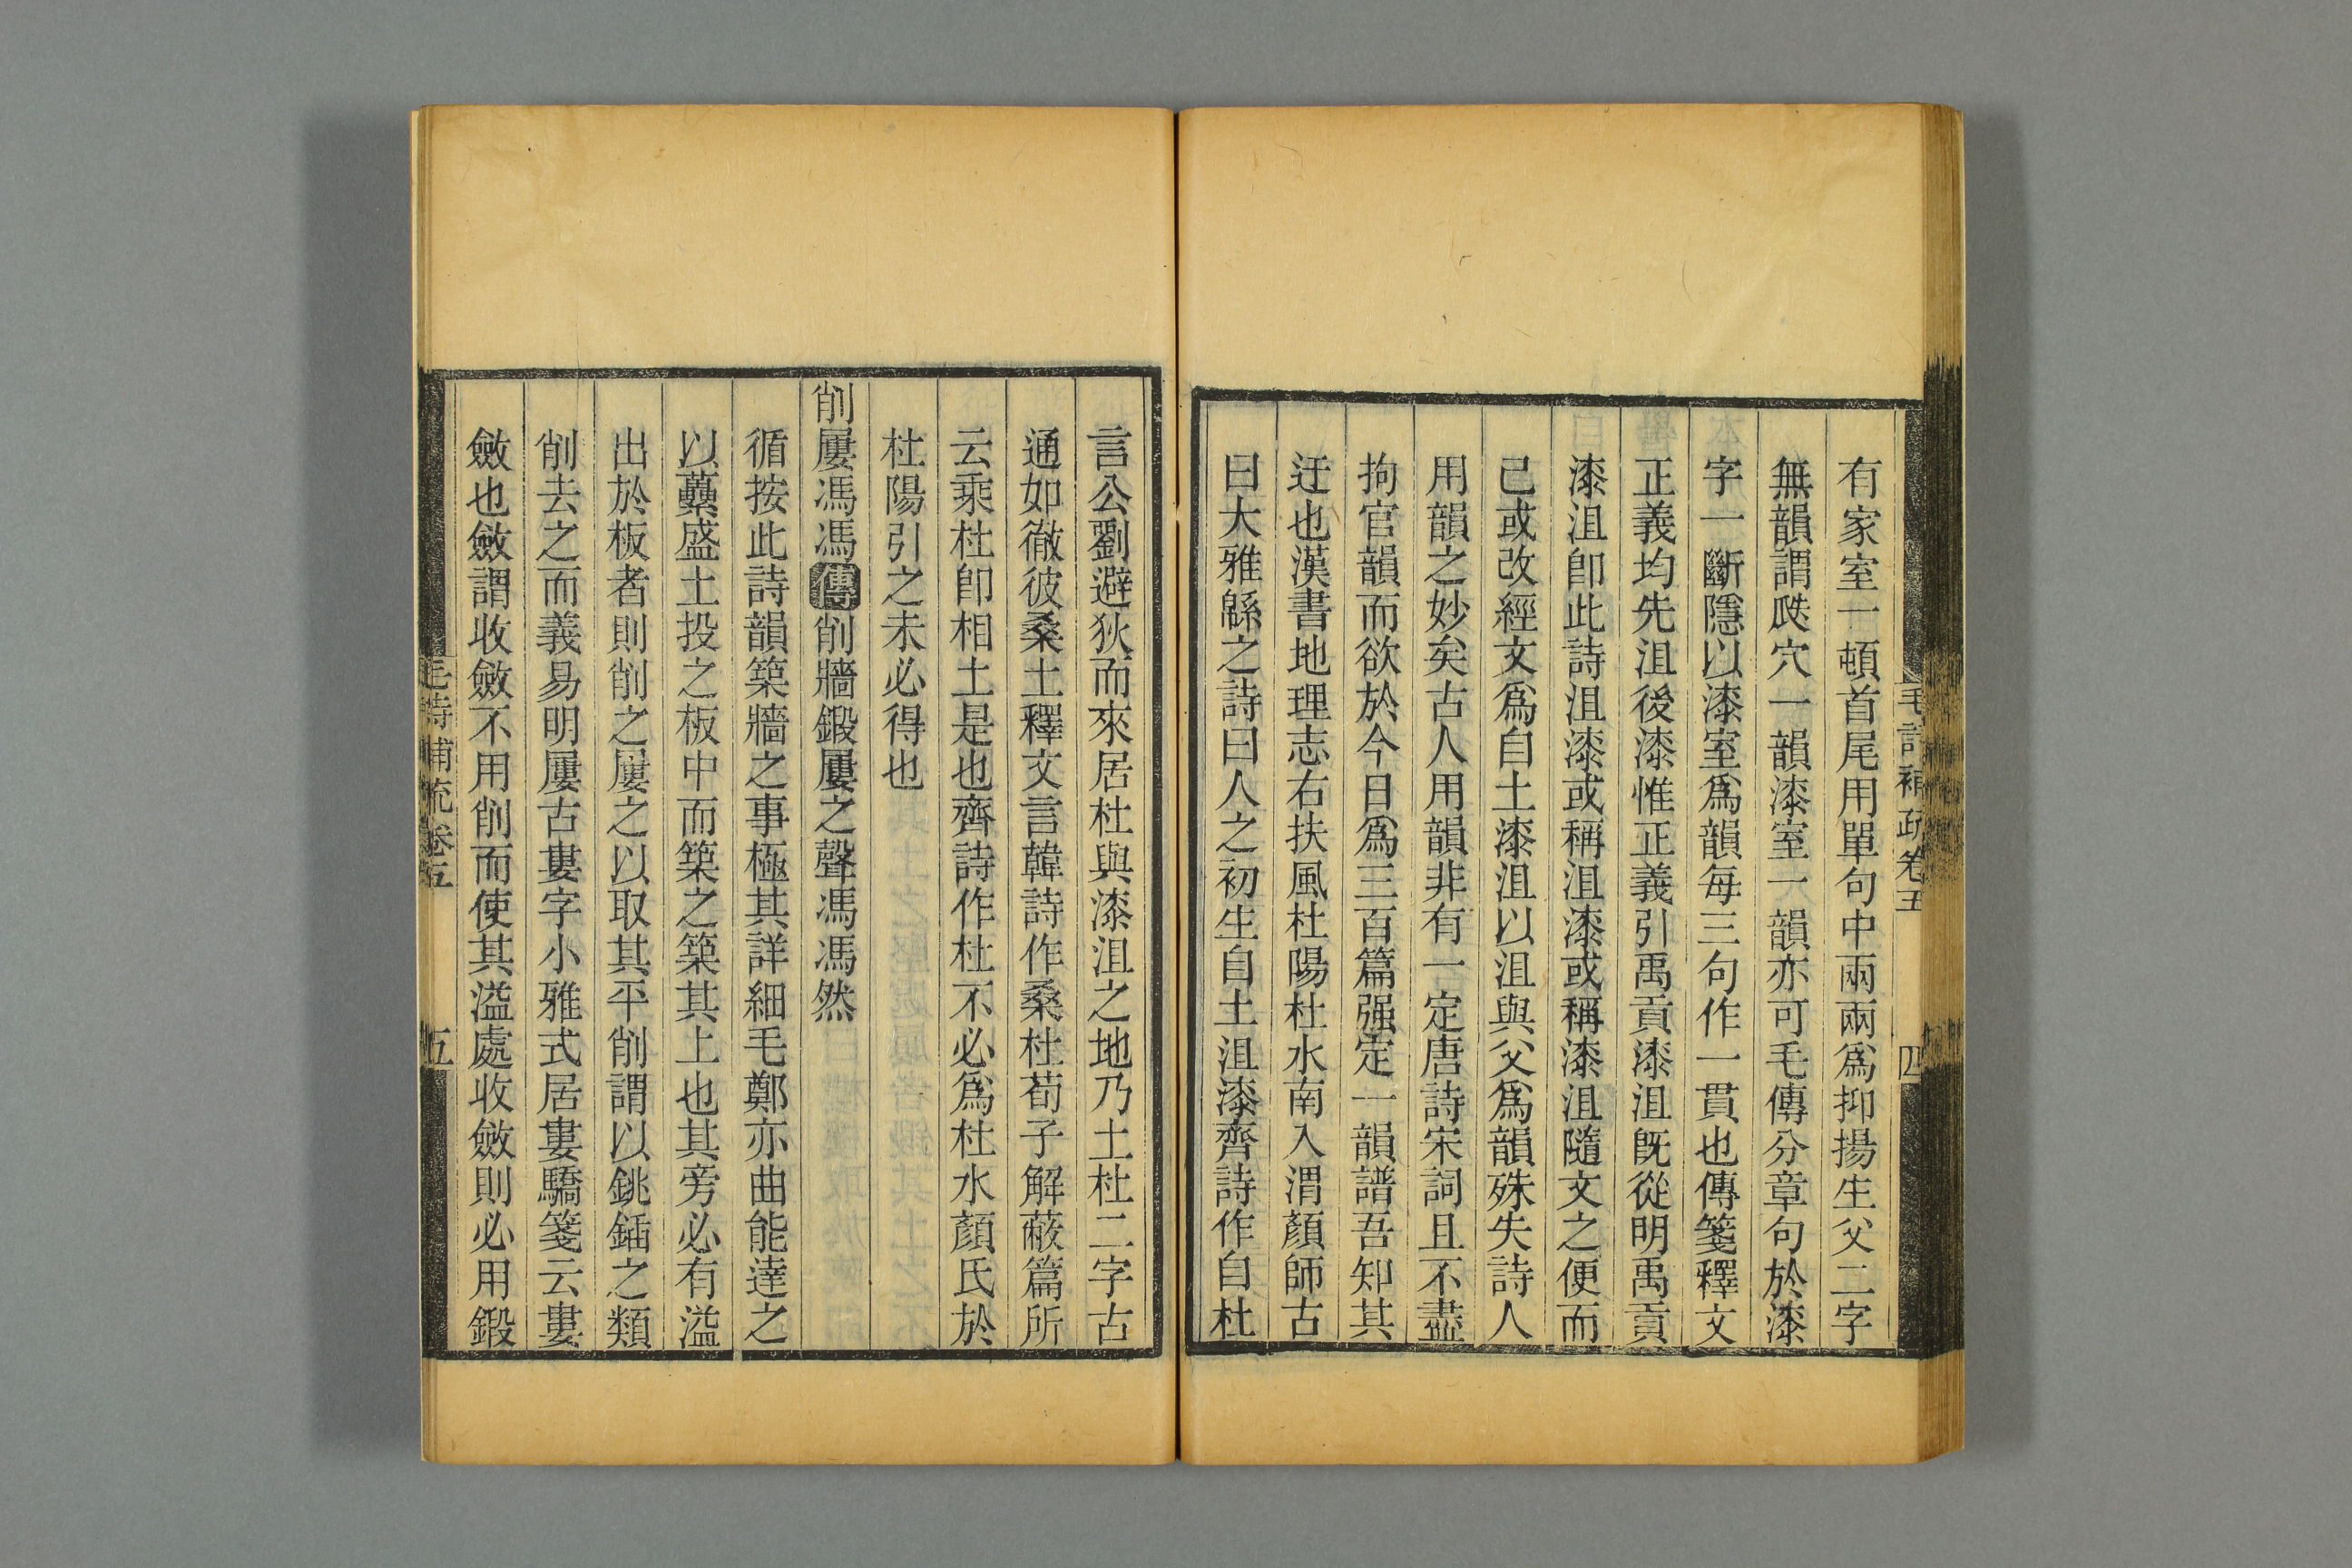 毛詩補疏卷五
四
有家室一頓首尾用單句中兩兩爲抑揚生父二字
無韻謂瓞穴一韻漆室一韻亦可毛傳分章句於漆
字一斷隱以漆室爲韻每三句作一貫也傳箋釋文
正義均先沮後漆惟正義引禹貢漆沮既從明禹貢
漆沮卽此詩沮漆或稱沮漆或稱漆沮隨文之便而
已或改經文爲自土漆沮以沮與父爲韻殊失詩人
用韻之妙矣古人用韻非有一定唐詩宋詞且不盡
拘官韻而欲於今日爲三百篇强定一韻譜吾知其
迂也漢書地理志右扶風杜陽杜水南入渭顏師古
曰大雅緜之詩曰人之初生自土沮漆齊詩作自杜
言公劉避狄而來居杜與漆沮之地乃土杜二字古
通如徹彼桑土釋文言韓詩作桑杜荀子解蔽篇所
云乘杜卽相土是也齊詩作杜不必爲杜水顏氏於
杜陽引之未必得也
削屢馮馮傳削牆鍛屢之聲馮馮然
循按此詩韻築牆之事極其詳細毛鄭亦曲能達之
以蘽盛土投之板中而築之築其上也其旁必有溢
出於板者則削之屢之以取其平削謂以銚鍤之類
削去之而義易明屢古婁字小雅式居婁驕箋云婁
斂也斂謂收斂不用削而使其溢處收斂則必用鍛
毛詩補疏卷五
五